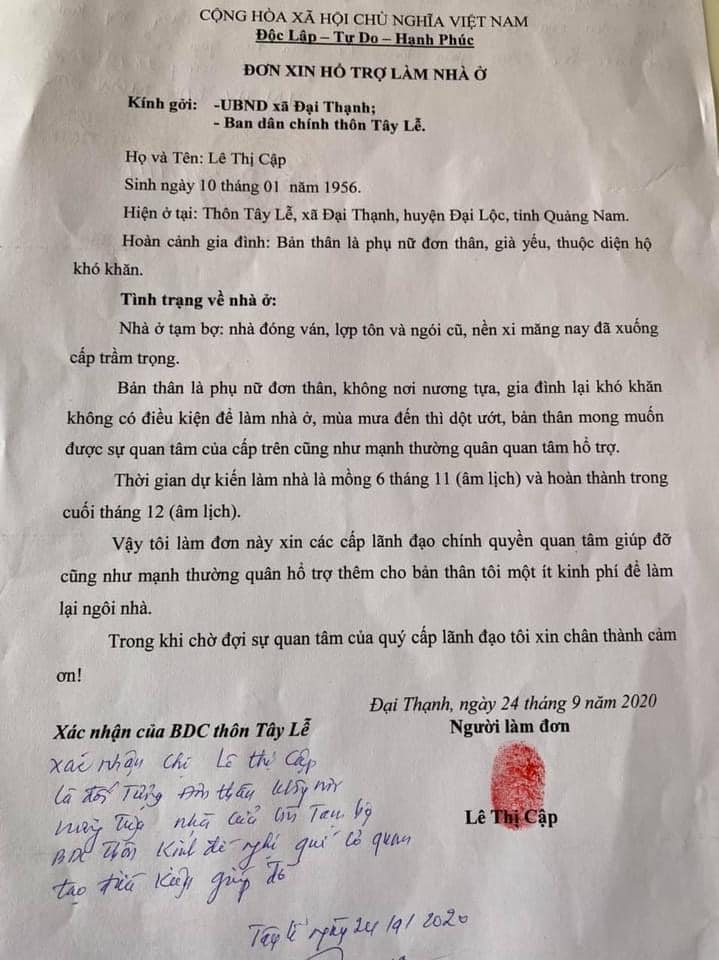 CỘNG HÒA XÃ HỘI CHỦ NGHĨA VIỆT NAM
Độc Lập – Tự Do – Hạnh Phúc
ĐƠN XIN HỔ TRỢ LÀM NHÀ Ở
Kính gởi: -UBND xã Đại Thạnh;
- Ban dân chính thôn Tây Lễ.
Họ và Tên: Lê Thị Cập
Sinh ngày 10 tháng 01 năm 1956.
Hiện ở tại: Thôn Tây Lễ, xã Đại Thạnh, huyện Đại Lộc, tỉnh Quảng Nam.
Hoàn cảnh gia đình: Bản thân là phụ nữ đơn thân, già yếu, thuộc diện hộ
khó khăn.
Tình trạng về nhà ở:
Nhà ở tạm bợ: nhà đóng ván, lợp tôn và ngói cũ, nền xi măng nay đã xuống
cấp trầm trọng.
Bản thân là phụ nữ đơn thân, không nơi nương tựa, gia đình lại khó khăn
không có điều kiện để làm nhà ở, mùa mưa đến thì dột ướt, bản thân mong muốn
được sự quan tâm của cấp trên cũng như mạnh thường quân quan tâm hổ trợ.
Thời gian dự kiến làm nhà là mồng 6 tháng 11 (âm lịch) và hoàn thành trong
cuối tháng 12 (âm lịch).
Vậy tôi làm đơn này xin các cấp lãnh đạo chính quyền quan tâm giúp đỡ
cũng như mạnh thường quân hổ trợ thêm cho bản thân tôi một ít kinh phí để làm
lại ngôi nhà.
Trong khi chờ đợi sự quan tâm của quý cấp lãnh đạo tôi xin chân thành cảm
ơn!
Đại Thạnh, ngày 24 tháng 9 năm 2020
Xác nhận của BDC thôn Tây Lễ
Người làm đơn
xác nhận chị Lê thị Cập
là đối Tượng đơn thân không nơi
nương tựa nhà cửa Tạm bợ
BDC thôn Kính đề nghị quí cơ quan
tạo điều kiện giúp đỡ
Lê Thị Cập
Tây lễ ngày 24/9/2020